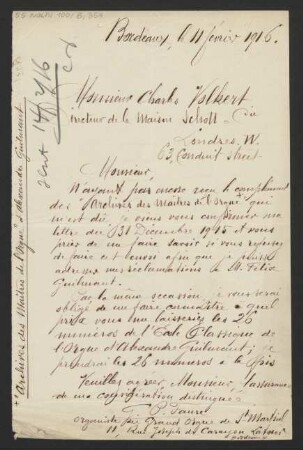 Bordeaux, le 11 février 1916.
Monsieur Charles Volkert
Directeur de la Maison Schott
Londres, W.
63, Conduit Street.
Monsieur,
N'ayant pas encore reçu le complément
des "Archives des Maîtres de l'Orgue" qui
m'est dû, je viens vous confirmer ma
lettre du 31 Décembre 1915 et vous
prier de me faire savoir si vous refusez
de faire cet envoi afin que je puisse
adresser mes réclamations à M. Félix
Guilmant.
Par la même occasion, je vous serai
obligé de me faire connaître à quel
prix vous me laisseriez les 26
numéros de l'École Classique de
l'Orgue d'Alexandre Guilmant; je
prendrai les 26 numéros à la fois
Veuillez agréer, Monsieur, l'assurance
de ma considération distinguée
Faure
organiste du Grand Orgue de St Martial
11, Rue Joseph de Carayon Latour
Bordeaux
"Archives des Maîtres de l'Orgue" d'Alexandre Guilmant
14/2/16